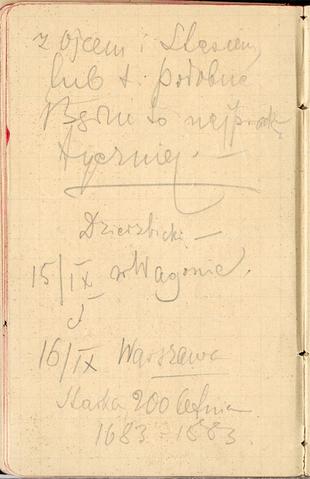 z ojcem i Stasiem
lub t. podobne
Będzie to najprak
tyczniej. —
Dzierzbicki —
15/IX w Wagonie.
16/IX Warszawa
200 letnia
1683 - 1883